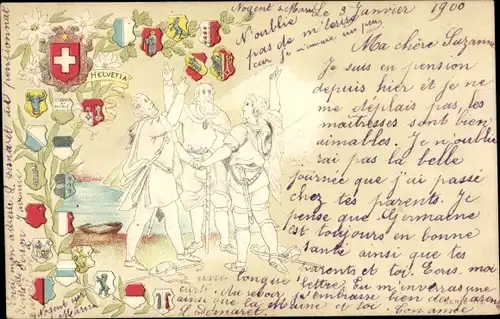 Nogent s. Marne Le 3 Janvier 1900
N'oublie
pas de m'écrire
car je m'ennuie un peu
Ma chère Suzanne
Je suis en pension
depuis hier et je ne
me déplais pas, les
maîtresses sont bien
aimables. Je n'oublie
rai pas la belle
journée que j'ai passé
chez tes parents. Je
pense que Germaine
est toujours en bonne
santé ainsi que tes
parents et toi. Ecris, moi
une longue lettre, Tu m'enverras une
carte. Au revoir, j'embrasse bien tes parents
ainsi que la Maine et toi. Ton amie
S. Demaret
HELVETIA
mon adresse S. Demaret
Nogent sur
Marne